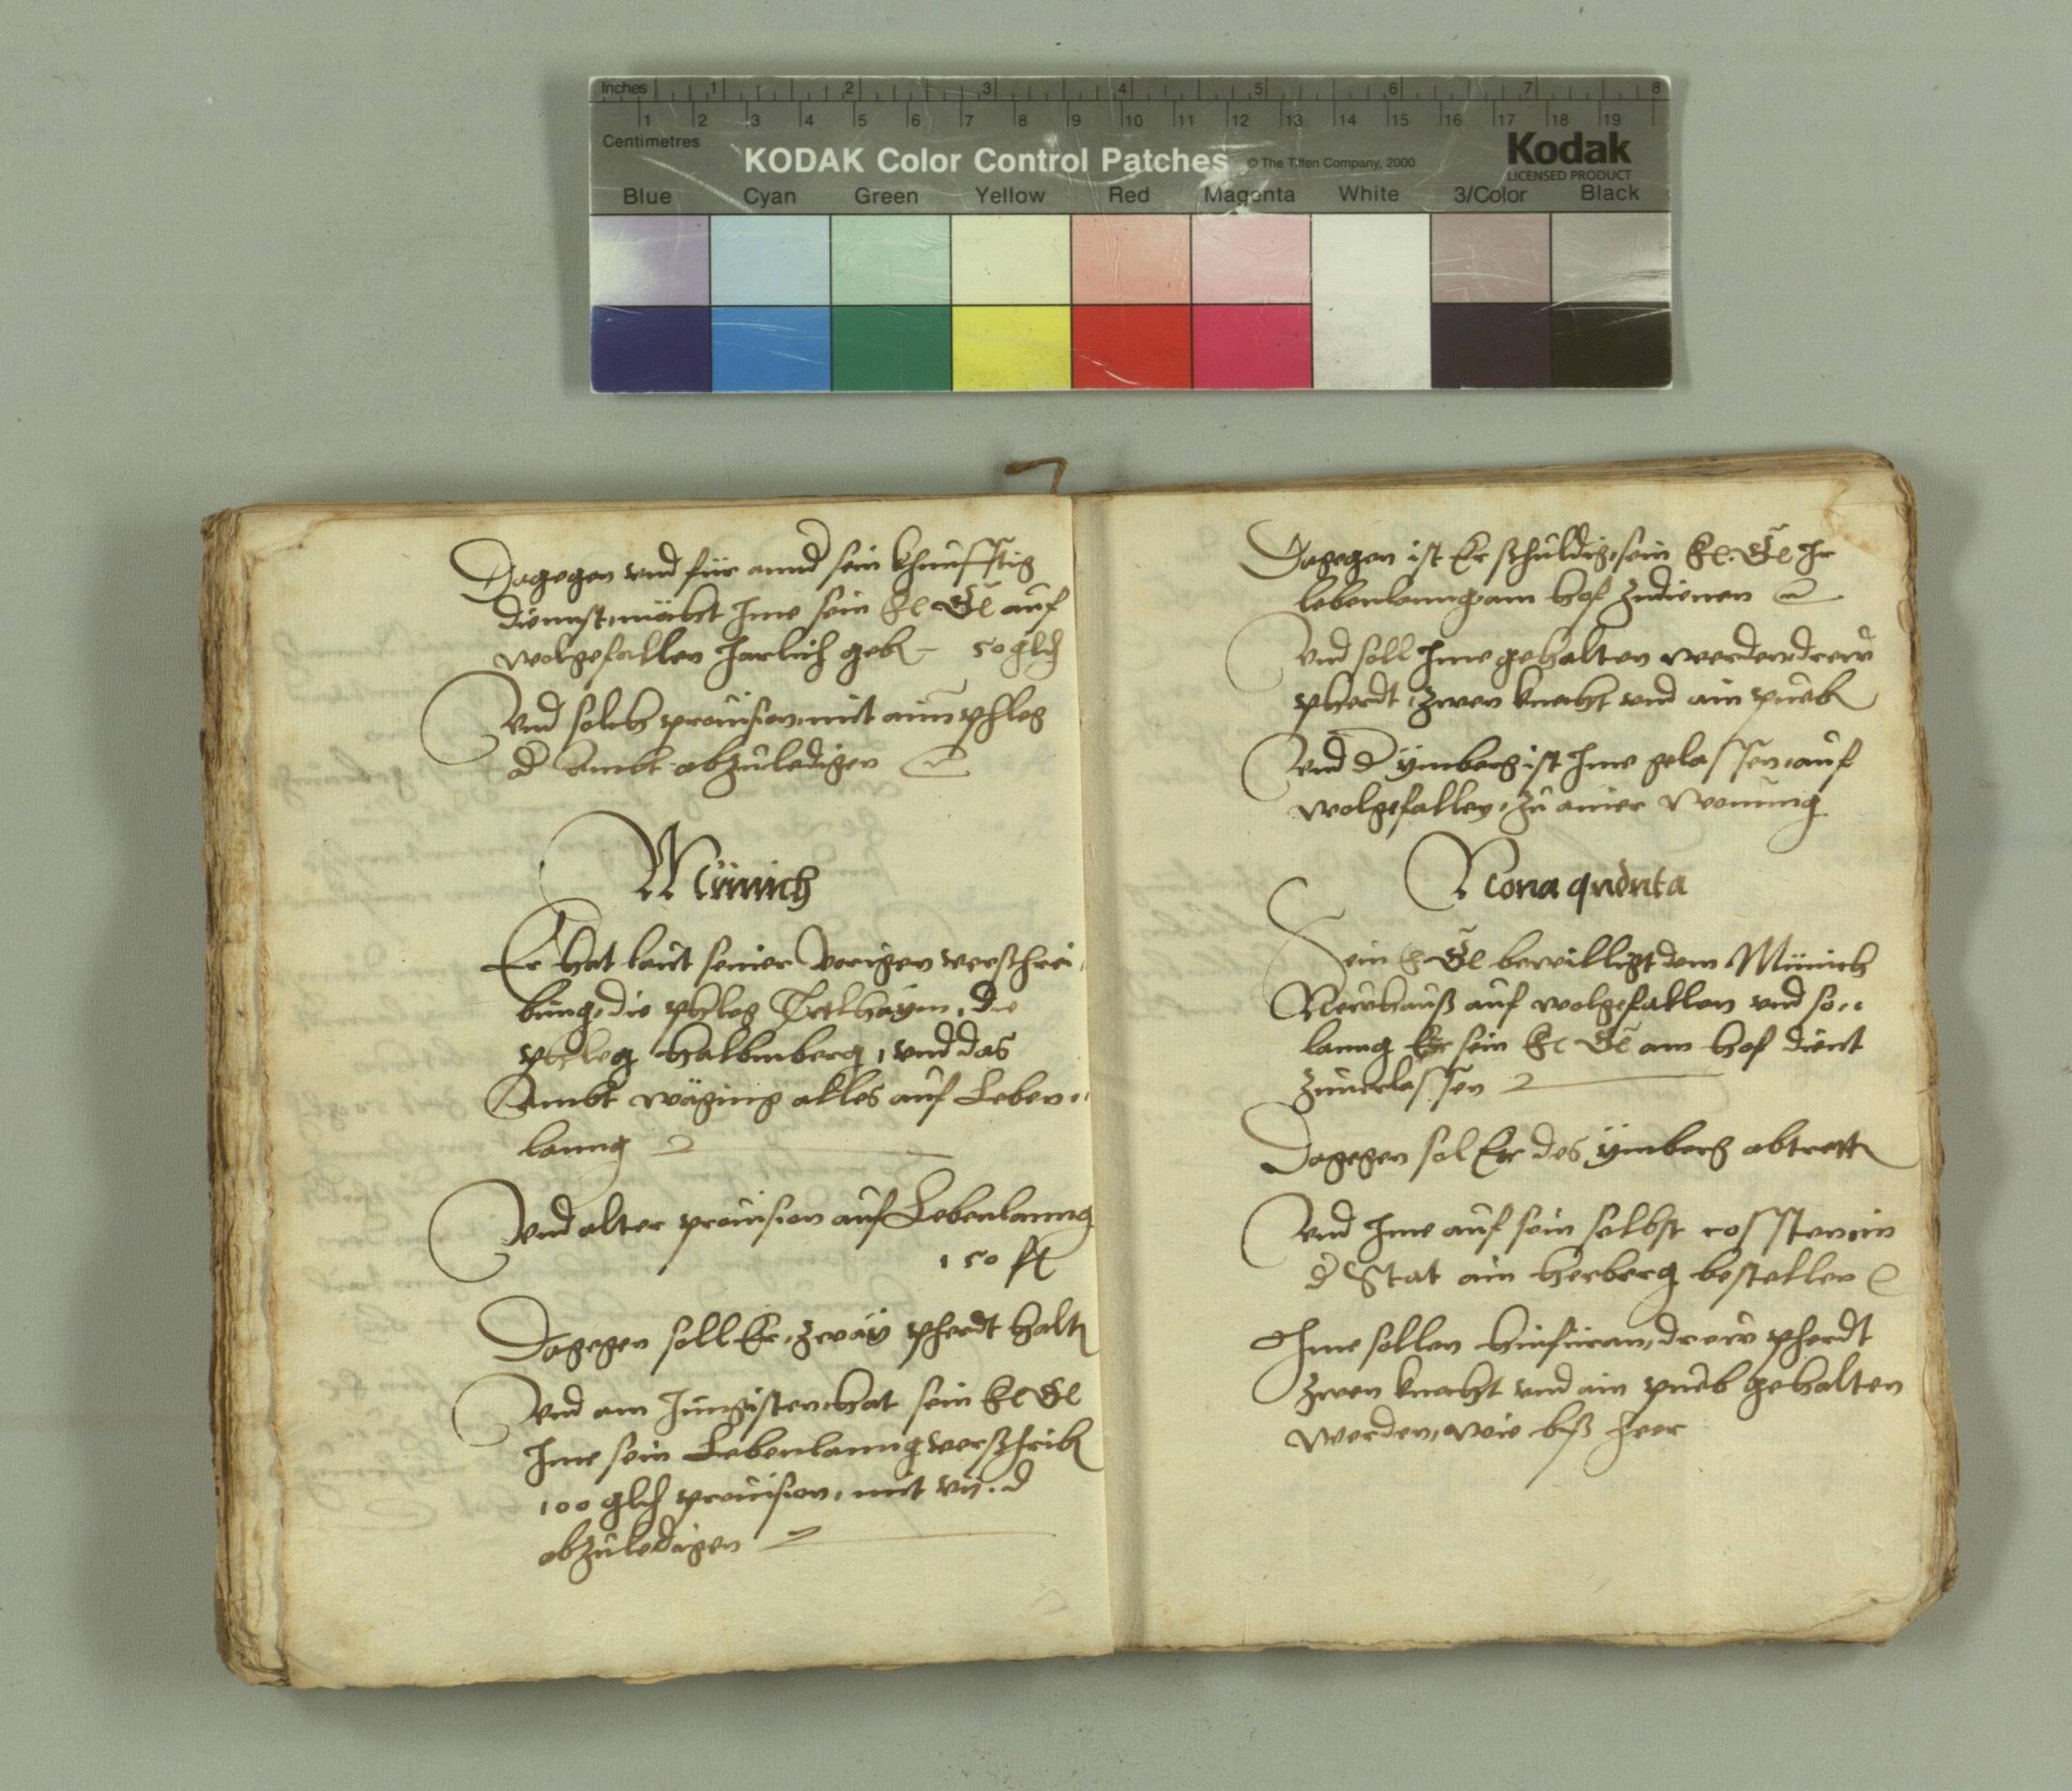 Inches 1 2 3 4 5 6 7 8
1 2 3 4 5 6 7 8 9 10 11 12 13 14 15 16 17 18 19
Centimetres
KODAK Color Control Patches © The Tiffen Company, 2000 Kodak
LICENSED PRODUCT
Blue Cyan Green Yellow Red Magenta White 3/Color Black
Dagegen vnd für annd sein khunfftig
diennst, macht Ime sein auf
wolgefallen Jarlich geb 50
Vnd solch prouision, mit ainer phleg
d Ambt abzuledigen
Münich
Er hat laut seiner vorigen verschrei
bung, die phleg Tetlhaym, die
phleg Halbmberg, vnd das
Ambt wäging alles auf Leben
lanng
Vnd alter prouision auf Lebenlanng
150 fl
Dagegen soll Er, zway pherdt halt
Vnd am Jungisten, hat sein
Ime sein Lebenlanng verschrib
100 prouision, mit
abzuledigen
Dagegen ist Er schuldig, sein Ir
lebenlanng, am hof zudienen
Vnd soll Ime gehalten werden drew
pherdt, zwen knecht vnd ain pueb
Vnd d ÿmberg ist Ime gelassen, auf
wolgefallen, zu ainer wonung
Nona
Sein bewilligt dem Münich
Newhauß auf wolgefallen vnd so
lanng Er sein am hof dient
zuuerlassen
Dagegen sol Er des ÿmberg abtrett
Vnd Ime auf sein selbst cossten, in
d Stat ain herberg bestellen
Ime sollen hinfüran, drew pherdt
zwen knecht vnd ain pueb gehalten
werden, wie biß heer